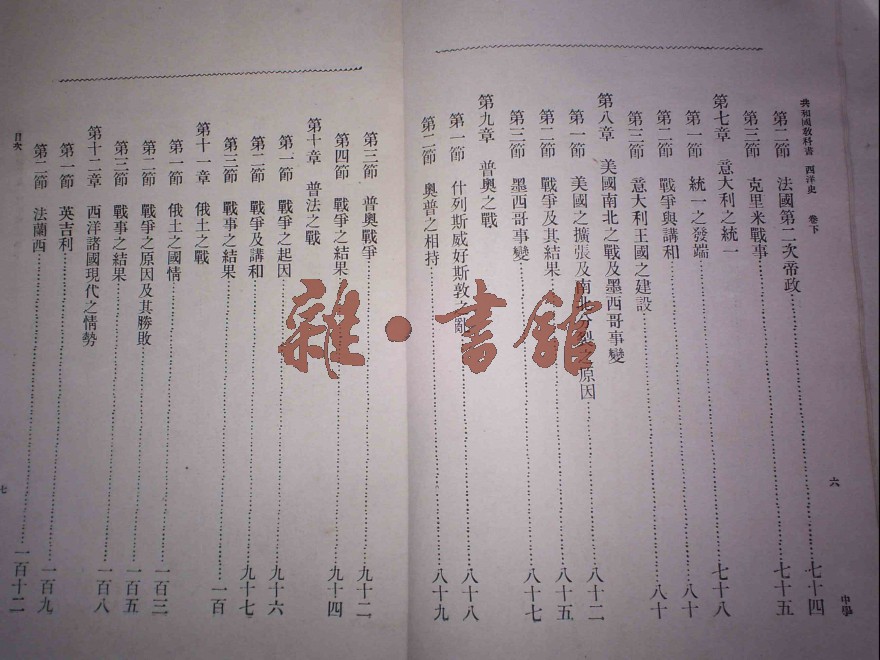 共和國敎科書 西洋史 卷下
六
中學
第二節 法國第二次帝政 七十四
第三節 克里米戰事 七十五
第七章 意大利之統一
第一節 統一之發端 七十八
第二節 戰爭與講和 八十
第三節 意大利王國之建設 八十
第八章 美國南北之戰及墨西哥事變
第一節 美國之擴張及南北分裂之原因 八十二
第二節 戰爭及其結果 八十五
第三節 墨西哥事變 八十七
第九章 普奧之戰
第一節 什列斯威好斯敦之亂 八十八
第二節 奧普之相持 八十九
第三節 普奧戰爭 九十二
第四節 戰爭之結果 九十四
第十章 普法之戰
第一節 戰爭之起因 九十六
第二節 戰爭及講和 九十七
第三節 戰事之結果 一百
第十一章 俄土之戰
第一節 俄土之國情 一百三
第二節 戰爭之原因及其勝敗 一百五
第三節 戰事之結果 一百八
第十二章 西洋諸國現代之情勢
第一節 英吉利 一百九
第二節 法蘭西 一百十二
目次
七
雜·書館